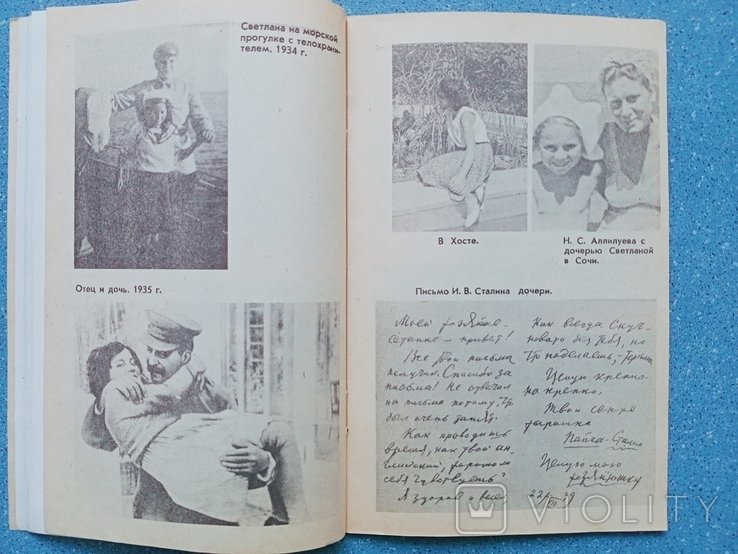 Светлана на морской
прогулке с телохрани-
телем. 1934 г.
Отец и дочь. 1935 г.
В Хосте.
Н. С. Аллилуева с
дочерью Светланой
в Сочи.
Письмо И. В. Сталина дочери.
Моей хозяюшке-
Сетанке – привет!
Все твои письма
получил. Спасибо за
письма! Не отвечал
на письма потому, что
был очень занят.
Как проводишь
время, как твой ан-
глийский, хорошо ли
себя чувствуешь?
Я здоров и весел
как всегда. Скуч-
новато без тебя, но
что поделаешь, – терплю.
Целую крепко-
крепко,
Твой
Папка-Сталин
Целую мою
хозяюшку
22/VII 39
VIOLITY